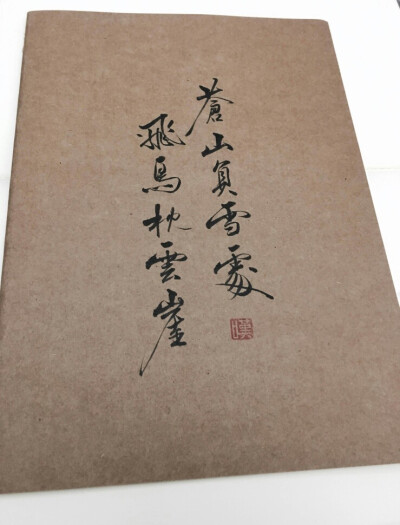 蒼山負雪處
飛鳥枕雲崖